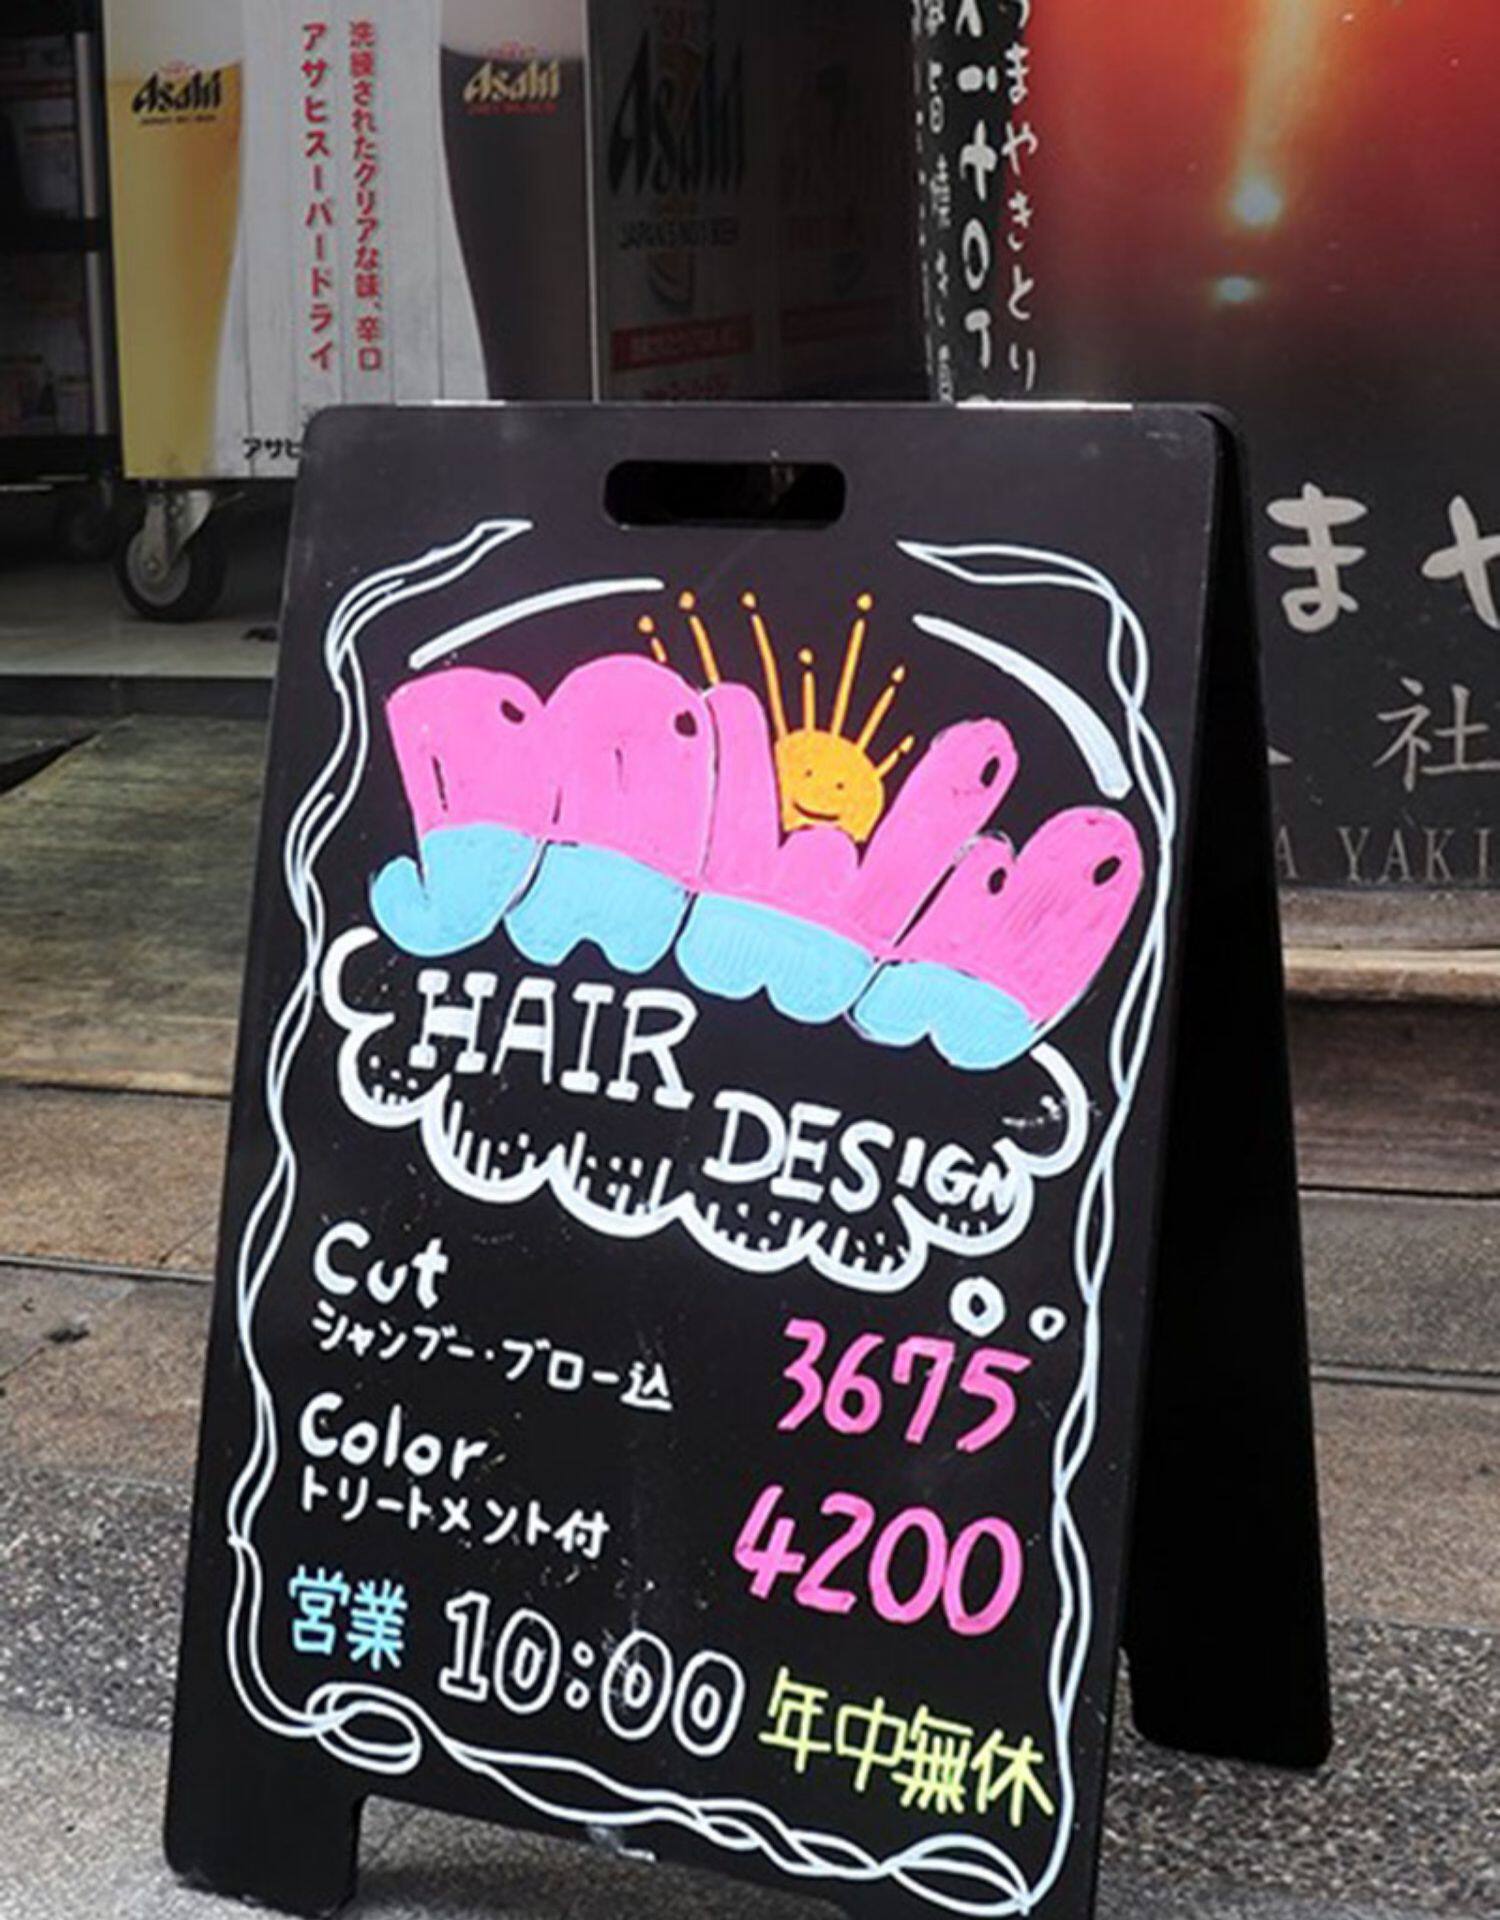 Asahi
洗練されたクリアな味、辛口
アサヒスーパードライ
Asahi
Asahi
JAPAN'S NO.1 BEER
アサヒ
うまやきとり
まや
社
A YAKI
HAIR
DESIGN
Cut
シャンプー・ブロー込
3675
Color
トリートメント付
4200
営業 10:00 年中無休